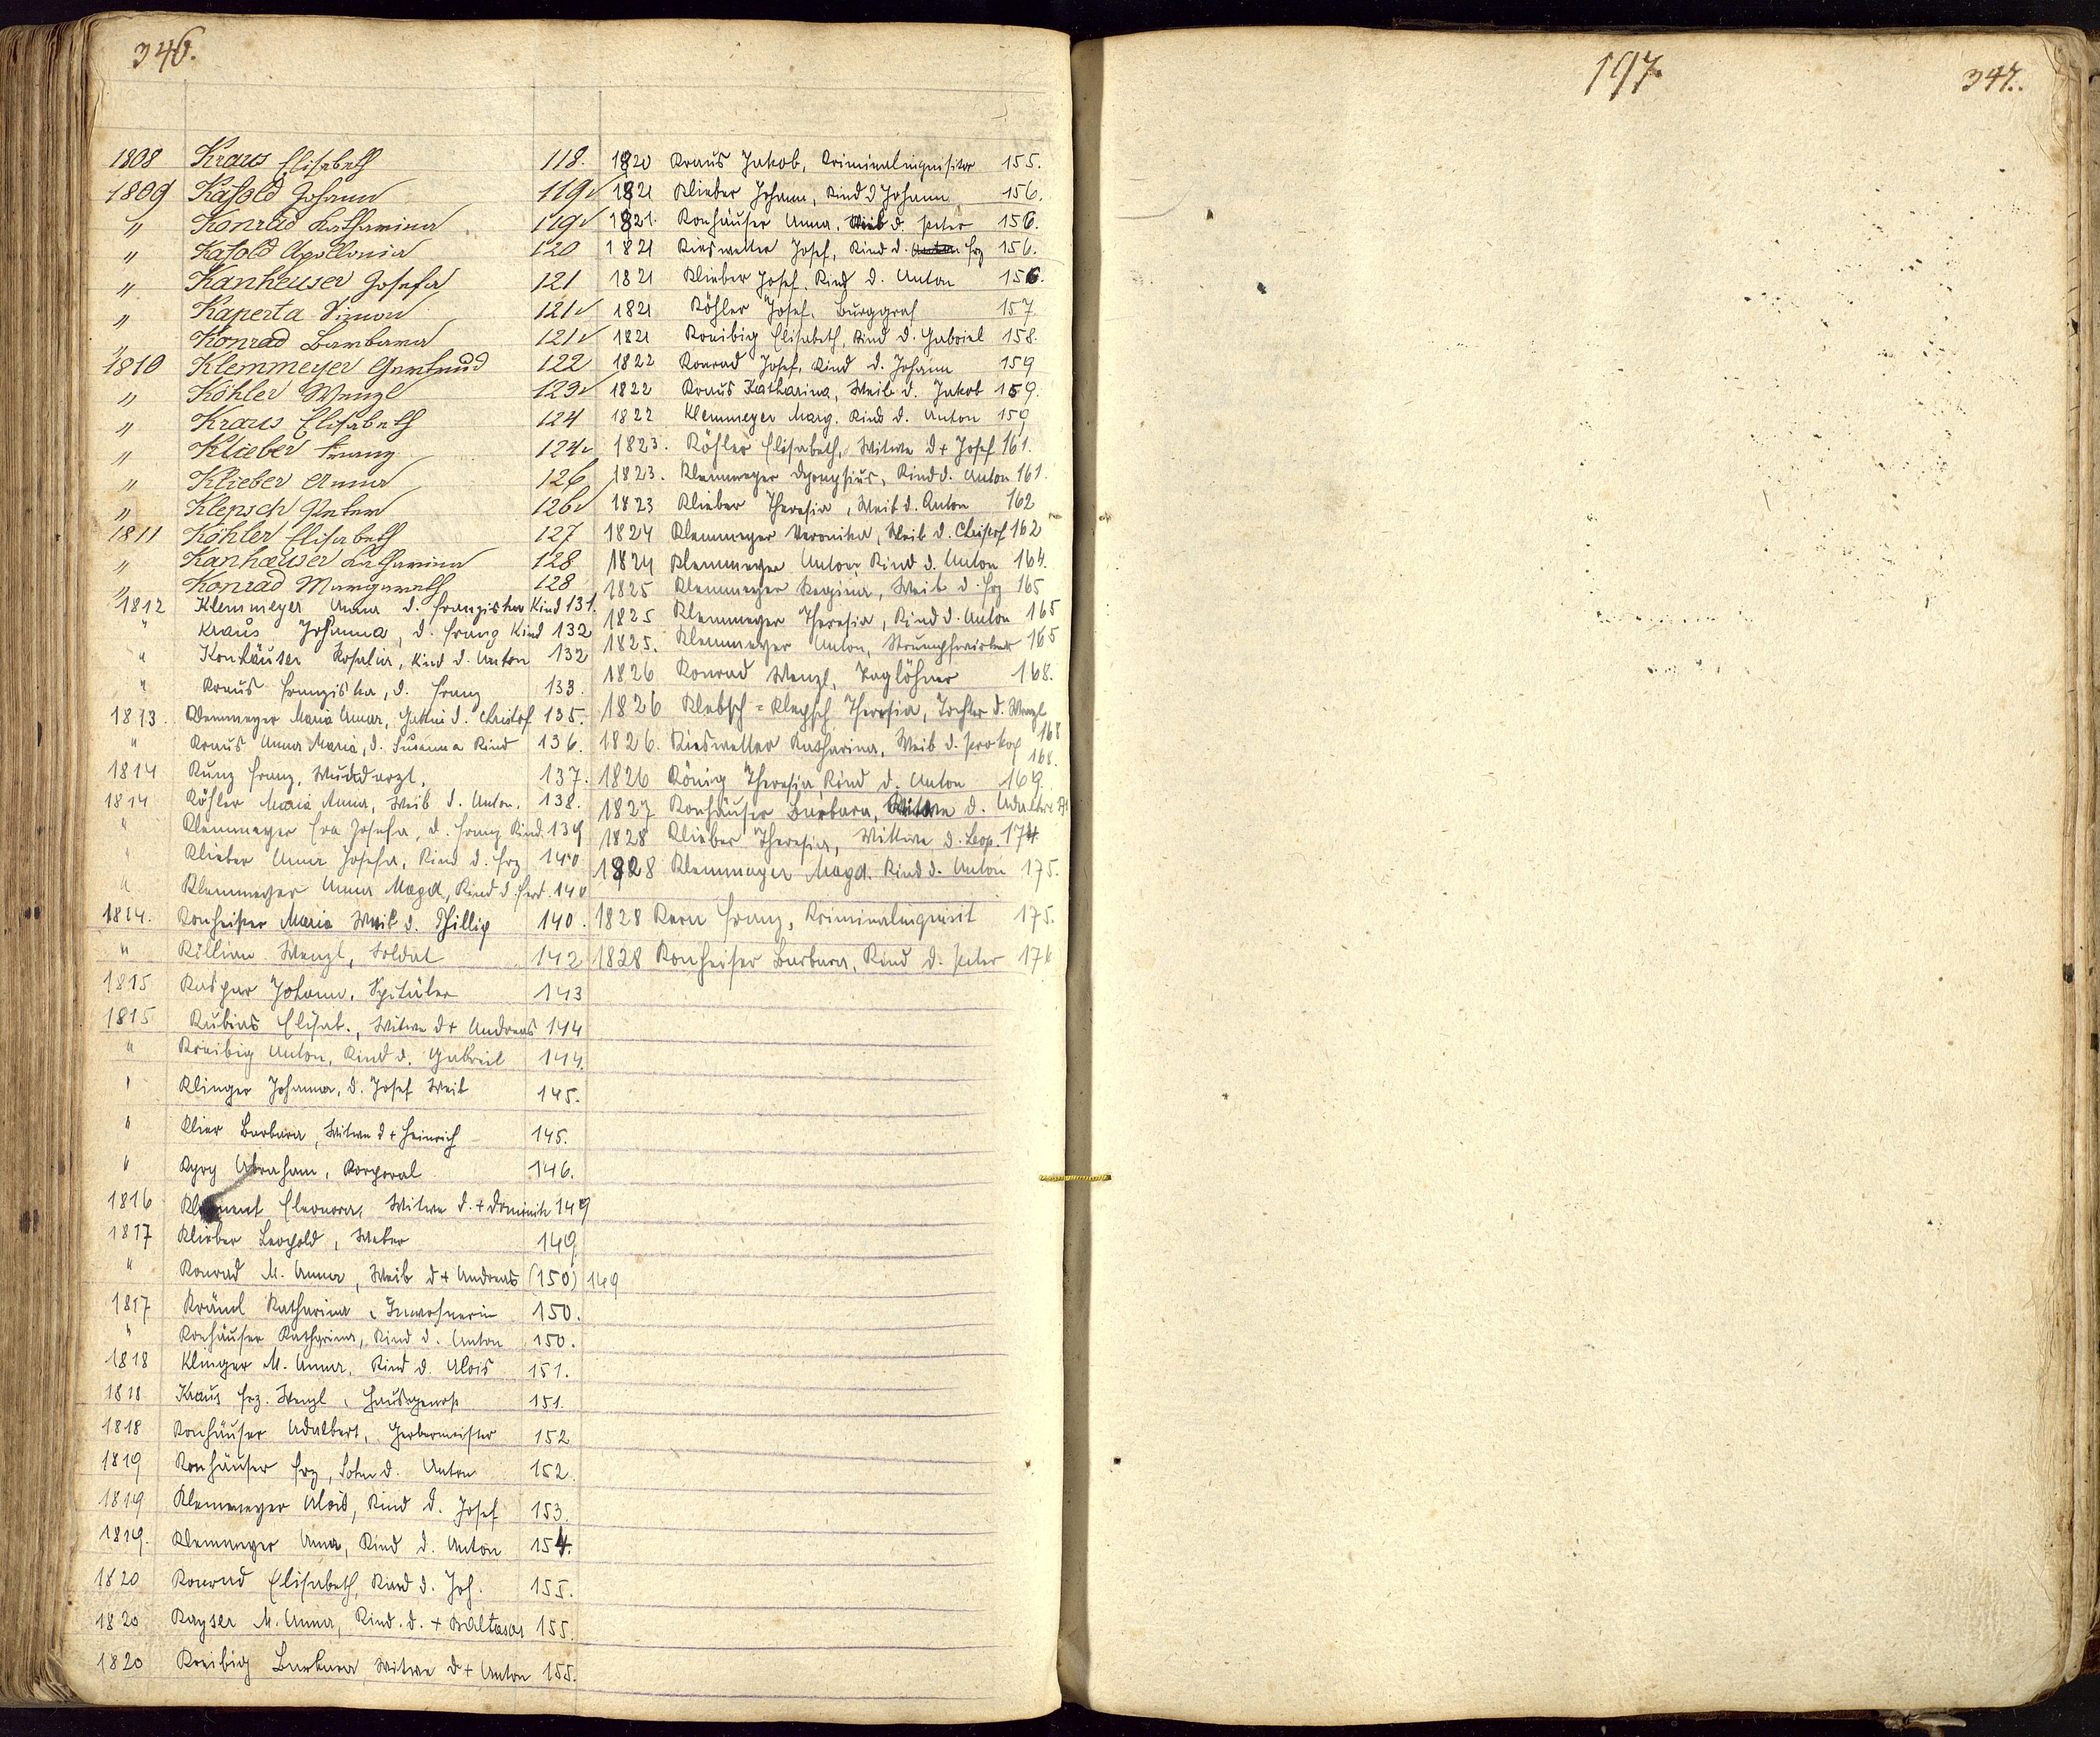 346.
1808 Kraus Elisabeth 118.
1809 Kasold Johann 119v
" Konrad Katharina 119v
" Kasold Apollonia 120
" Kanheuser Josefa 121
" Kaperta Simon 121v
" Konrad Barbara 121v
1810 Klemmeyer Gertrud 122
" Köhler Wenzl 123v
" Kraus Elisabeth 124
" Klieber Franz 124v
" Klieber Anna 126
" Klepsch Peter 126v
1811 Köhler Elisabeth 127
" Kanhæuser Katharina 128
" Konrad Margareth 128
1812 Klemmeyer Anna d. Franziska Kind 131.
" Kraus Johanna, d. Franz Kind 132
" Konhäuser Rosalia, Kind d. Anton 132
" Kraus Franziska, d. Franz 133.
1813. Klemmeyer Maria Anna, Gattin d. Christof 135.
" Kraus Anna Maria, d. Susanna Kind 136.
1814 Kunz Franz, Wundarzt, 137.
1814 Köhler Maria Anna, Weib d. Anton. 138.
" Klemmeyer Eva Josefa, d. Franz Kind. 139
" Klieber Anna Josefa, Kind d. Frz 140
" Klemmeyer Anna Magd, Kind d. Ferd. 140
1814. Konheiser Maria Weib d. Phillip 140.
" Killian Wenzl, Soldat 142
1815 Kaspar Johann, Spitäler 143
1815 Kubias Elisab., Witwe d + Andreas 144
" Kreibig Anton, Kind d. Gabriel 144.
" Klinger Johanna, d. Josef Weib 145.
" Klier Barbara, Witwe d + Heinrich 145.
" Kyry Abraham, Korporal 146.
1816 Element Eleonora, Witwe d. + Dominik 149
1817 Klieber Leopold, Weber 149.
" Konrad M. Anna, Weib d + Andreas (150) 149
1817 Kräml Katharina, Inwohnerin 150.
" Konhäuser Katharina, Kind d. Anton 150.
1818 Klinger M. Anna, Kind d. Alois 151.
1818 Kraus Frz. Wenzl, Hausgenoss 151.
1818 Konhäuser Adalbert, Gerbermeister 152
1819 Konhäuser Frz, Sohn d. Anton 152.
1819 Klemmeyer Alois, Kind d. Josef 153.
1819. Klemmeyer Anna, Kind d. Anton 154.
1820 Konrad Elisabeth, Kind d. Joh. 155.
1820 Kayser M. Anna, Kind. d. + Baltasar 155.
1820 Kreibig Barbara Witwe d + Anton 155.
1820 Kraus Jakob, Kriminalinquisitor 155.
1821 Klieber Johann, Kind d Johann 156.
1821. Konhäuser Anna, Weib d. Peter 156.
1821 Kieswetter Josef, Kind d. Anton Frz 156.
1821 Klieber Josef, Kind d. Anton 156.
1821 Köhler Josef, Burggraf 157
1821 Kreibig Elisabeth, Kind d. Gabriel 158.
1822 Konrad Josef, Kind d. Johann 159
1822 Kraus Katharina, Weib d. Jakob 159.
1822 Klemmeyer Marg. Kind d. Anton 159
1823. Köhler Elisabeth, Witwe d + Josef 161.
1823. Klemmeyer Dyonysius, Kind d. Anton 161.
1823 Klieber Theresia, Weib d. Anton 162
1824 Klemmeyer Veronika, Weib d. Christof 162
1824 Klemmeyer Anton Kind d. Anton 164.
1825 Klemmeyer Regina, Weib d. Frz 165
1825 Klemmeyer Theresia, Kind d. Anton 165
1825. Klemmeyer Anton, Strumpfwirker 165
1826 Konrad Wenzl, Taglöhner 168.
1826 Klebsch = Klepsch Theresia, Tochter d. Wenzl 168
1826. Kieswetter Katharina, Weib d. Prokop 168.
1826 König Theresia Kind d. Anton 169.
1827 Konhäuser Barbara, Witwe d.
1828 Klieber Theresia, Wittwe d. Leop. 174.
1828 Klemmayer Magd. Kind d. Anton 175.
1828 Kern Franz, Kriminalinquisit 175.
1828 Konheiser Barbara, Kind d. Peter
197.
347.